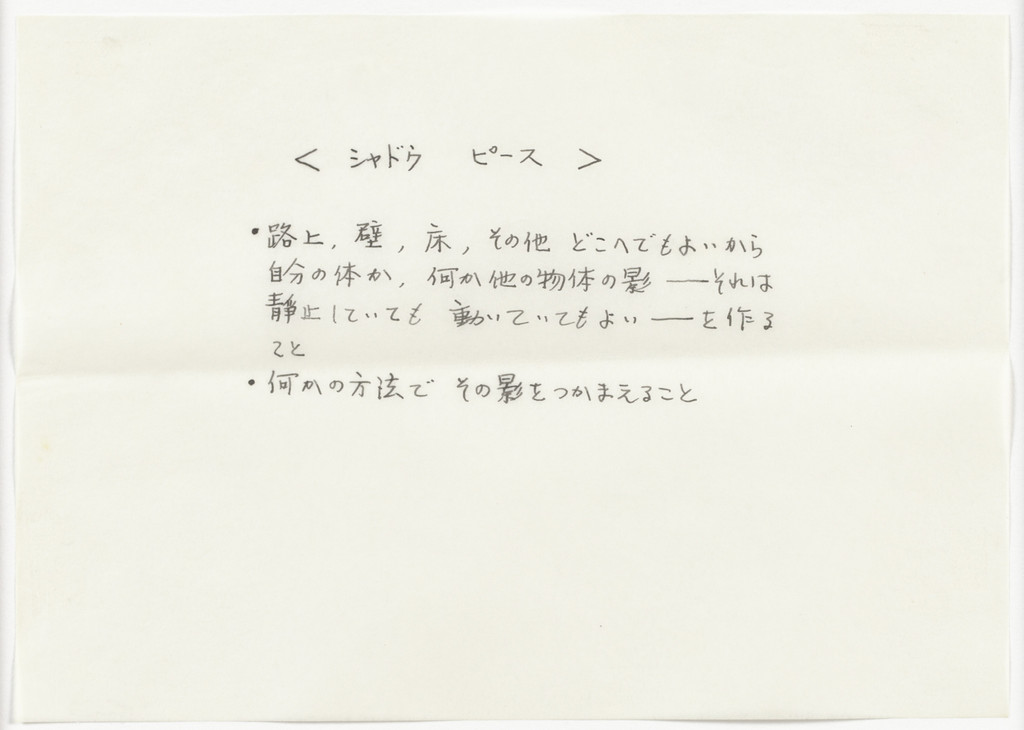 < シャドウ ピース >
・路上, 壁, 床, その他 どこへでもよいから
自分の体か, 何か他の物体の影 ――それは
静止していても 動いていてもよい――を作る
こと
・何かの方法で その影をつかまえること